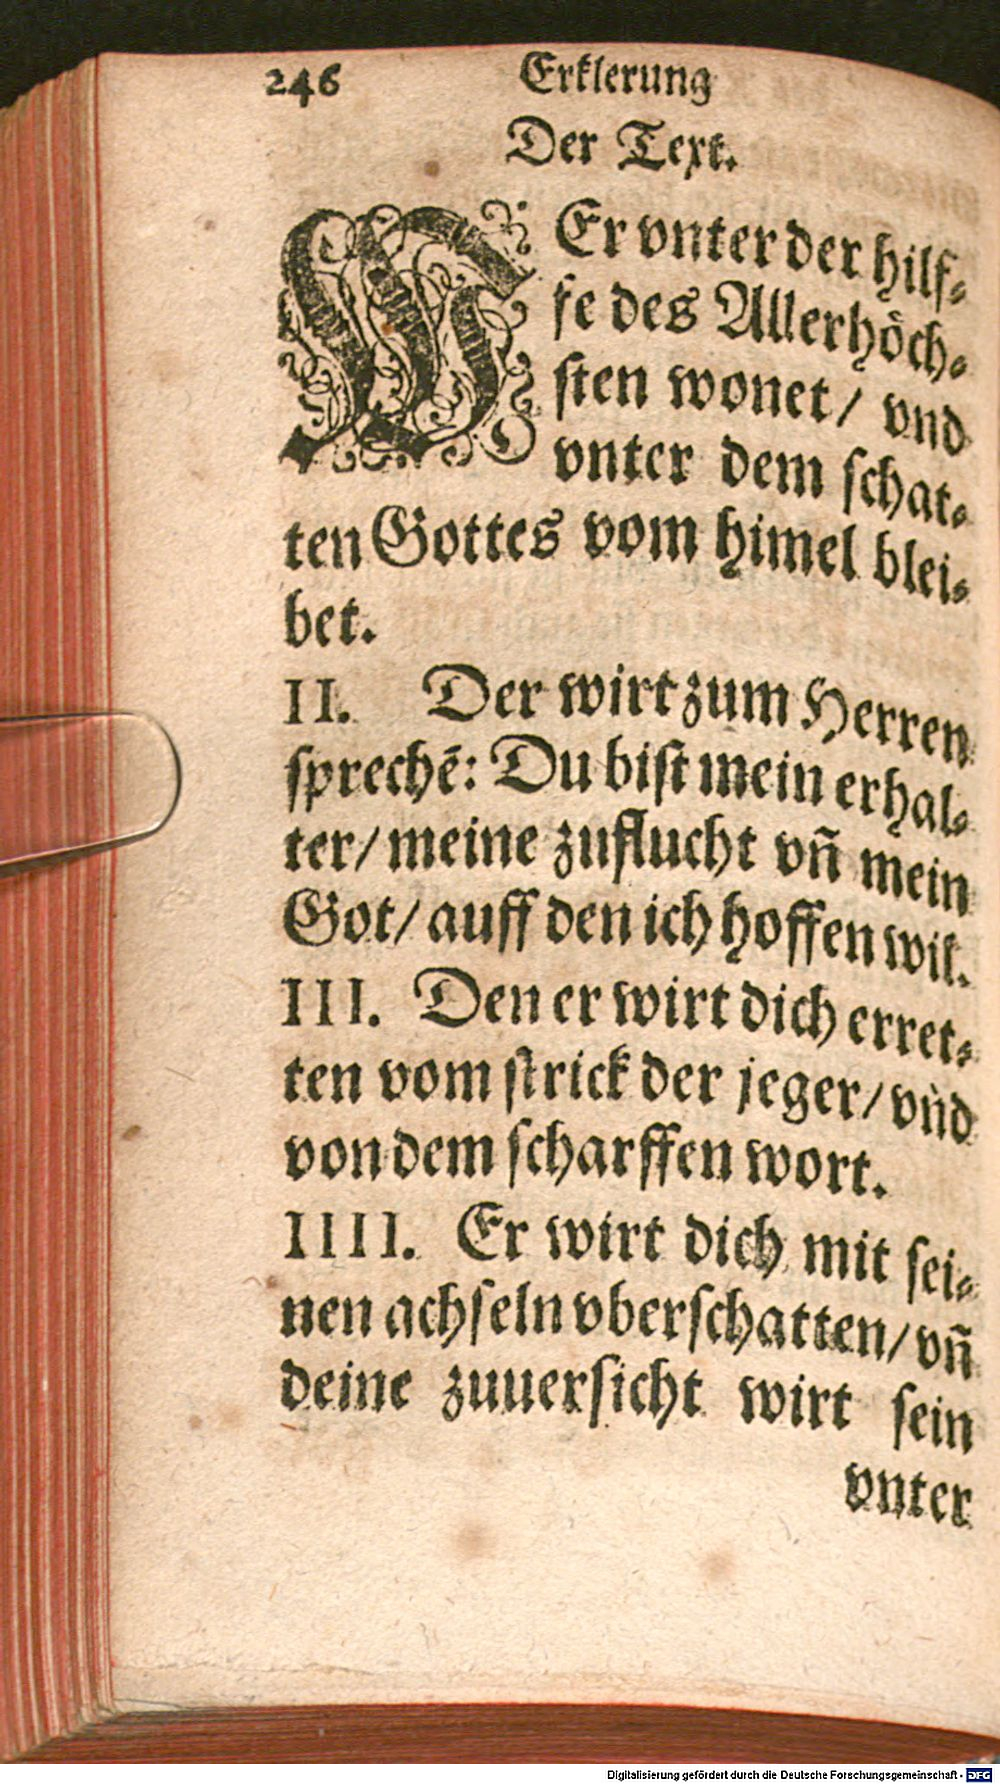 246 Erklerung
Der Text.
WEr vnter der hilf⸗
fe des Allerhöch⸗
sten wonet/ vnd
vnter dem schat⸗
ten Gottes vom himel blei⸗
bet.
II. Der wirt zum Herren
sprechē: Du bist mein erhal⸗
ter/ meine zuflucht vñ mein
Got/ auff den ich hoffen wil.
III. Den er wirt dich erret⸗
ten vom strick der jeger/ vnd
von dem scharffen wort.
IIII. Er wirt dich mit sei⸗
nen achseln vberschatten/ vñ
deine zuuersicht wirt sein
vnter
Digitalisierung gefördert durch die Deutsche Forschungsgemeinschaft - DFG